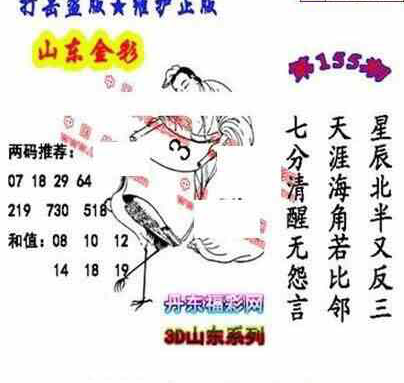 打击盗版★维护正版
山东金彩
第155期
3
两码推荐:
07 18 29 64
219 730 518
和值: 08 10 12
14 18 19
星辰北半又反三
天涯海角若比邻
七分清醒无怨言
丹东福彩网
3D山东系列